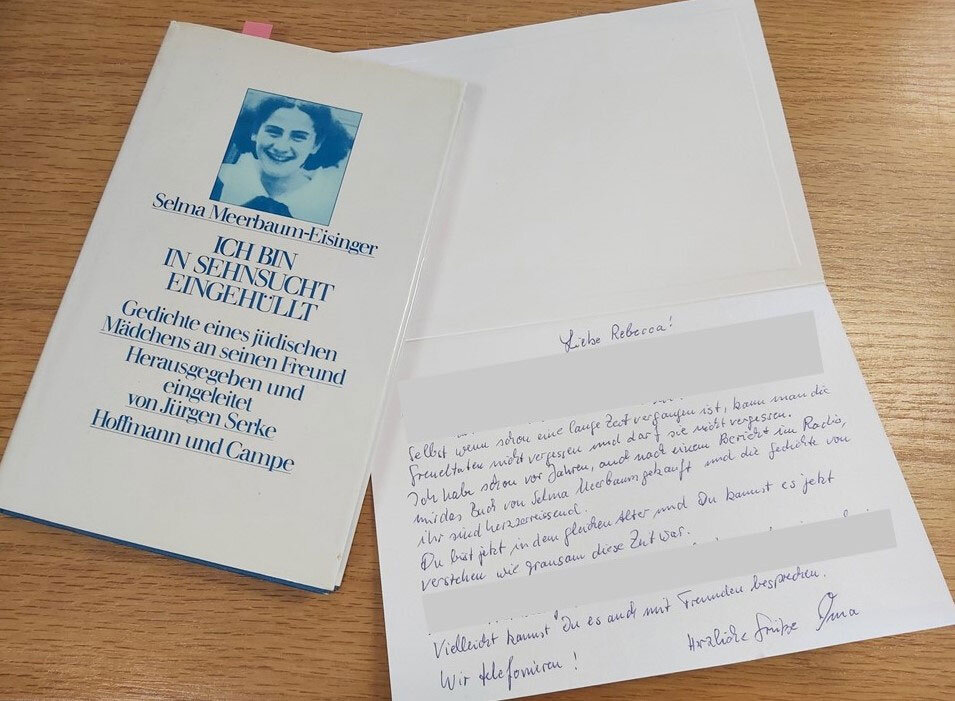 Selma Meerbaum-Eisinger
ICH BIN
IN SEHNSUCHT
EINGEHÜLLT
Gedichte eines jüdischen
Mädchens an seinen Freund
Herausgegeben und
eingeleitet
von Jürgen Serke
Hoffmann und Campe
Liebe Rebecca!
Selbst wenn schon eine lange Zeit vergangen ist, kann man die
Greueltaten nicht vergessen und darf sie nicht vergessen.
Ich habe schon vor Jahren, auch nach einem Bericht im Radio,
mir das Buch von Selma Meerbaum gekauft und die Gedichte von
ihr sind herzzerreissend.
Du bist jetzt in dem gleichen Alter und Du kannst es jetzt
verstehen wie grausam diese Zeit war.
Vielleicht kannst Du es auch mit Freunden besprechen.
Wir telefonieren!
Herzliche Grüße Oma